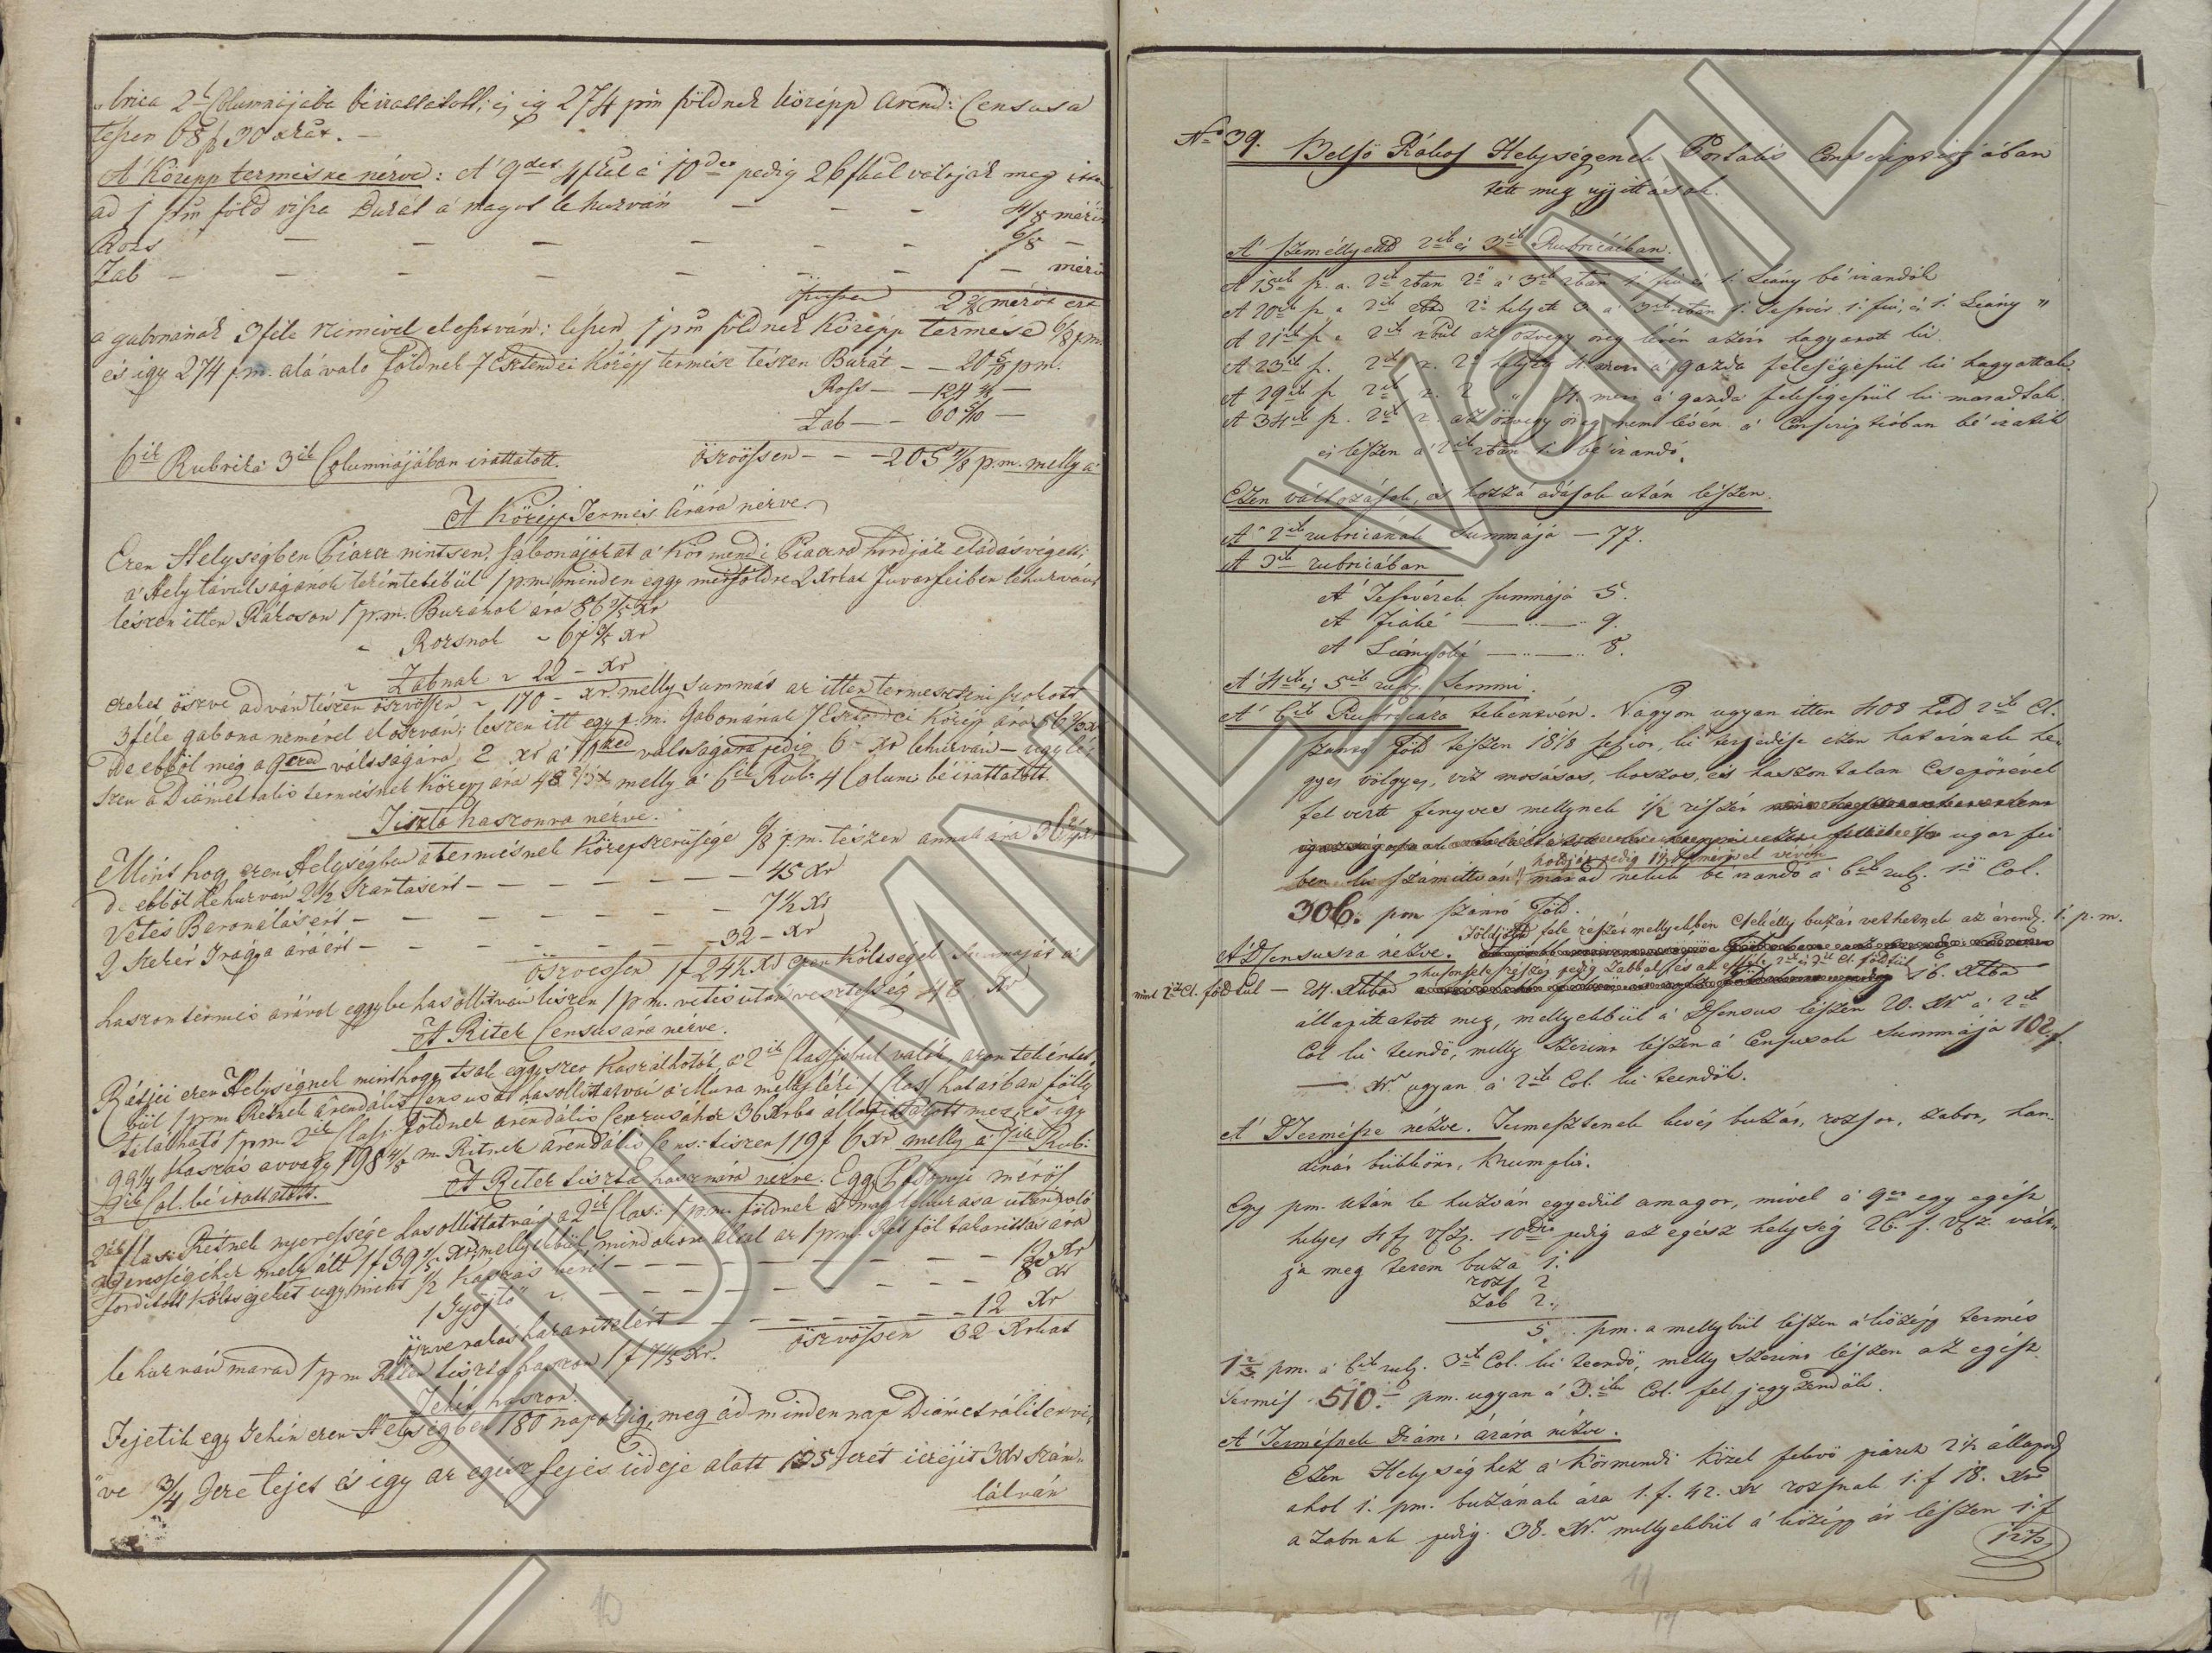 brica 2ik Columnájába béirattatott; és így 274 pm földnek középp Arend: Censusa
teszen 68 f 30 xrat.
A' Közepp termésre nézve: A' 9det 4 fl à 10det pedig 26 fl váltják meg
ad 1 pm föld vissza Buzát a' magot le huzván — — — 4/8 mérőt
Rozs — — — — — — 6/8 —
Zab — — — — — — 1 — mérő
öszvessen 2 2/8 mérőt ezt
a gabonának 3féle nemével elosztván; leszen 1 pm földnek Középp termése 6/8 pm.
és így 274 p.m. alá való földnek 7 Esztendei Középp termése tészen Buzát — — 20 5/8 pm.
Ross — — 124
Zab — — 60
öszvössen — — — 205 4/8 p.m. melly a'
6ik Rubrika 3ik Columnájában irattatott.
A' Középp Termés Árára nézve
Ezen Helységben Piacz nintsen, Gabonájokat a' Körmendi Piaczra hordják eladás végett;
a' Hely távulságának tekéntetébül 1 pm. minden eggy mérföldre 2 Xrkat Fuvarfeiben lehuzván
lészen itten Rákoson 1 p.m. Buzának ára 86 2/5 Xr
" Rozsnak " 61 3/5 Xr
" Zabnak " 22 — Xr
ezeket öszve adván tészen öszvössen " 170 — xr. melly summát az itten termeszteni szokott
3féle gabona nemével elosztván; leszen itt egy p.m. Gabonának 7 Eszdei Közép ára 56 2/3 xr
De ebből még a 9ced váltságára 2 xr a' 10ked váltságára pedig 6 — xr lehúzván — ugy lé-
szen a Diametralis termésnek Közepp ára 48 2/3 xr melly a' 6ik Rub: 4 Colum: béirattatott.
Tiszta haszonra nézve.
Mint hogy ezen Helységben a termésnek Közepszerüsége 6/8 p.m. tészen annak ára 36
De ebből lehuzván 2 1/2 Szántásért — — — — — — 45 Xr
Vetés Baronálásért — — — — — — 7 1/2 Xr
2 Szekér Trágya áráért — — — — — — 32 — Xr
öszvessen 1 f 24 1/2 Xr ezen Költségek Summáját a'
haszontermés árával eggybe hasollitván lészen 1 p.m. vetés után vesztesség 48 Xr
A' Rétek Censusára nézve.
Rétjei ezen Helységnek minthogy tsak eggyszer Kaszálhatók, a' 2ik Classisbul valók, azon tekéntet-
bül 1 pm Rétnek Árendális Censusát hasollittatván a' Mura mellyéki 1 Class határban fölly
található 1 pm. 2ik Clasi: földnek arendális Censusához 36 Xrba állapittatott meg, és így
99 1/4 Kaszás avvagy 198 4/8 m. Rétnek árendális Cens: tészen 119 f 6 Xr melly a' 7ik Rub:
2ik Col. bé irattatott.
A' Rétek tiszta hasznára nézve. Egg Posonyi mérős
2ik Clas: Rétnek nyeressége hasollittatván a 2ik Clas: 1 p.m. földnek a' mag lehuzása után való
nyereségéhez mely ált 1 f 39 1/5 Xr, mellyekbül, mind azon által az 1 pm. Rét föl takarittás ára
forditott költségeket ugymint 1/2 Kaszás bérit — — — — — — 12 Xr
1 Gyöjtö " — — — — — — 8 Xr
öszve rakás hazavitelért — — — — — — 12 Xr
öszvössen 32 Xrkat
le huzván marad 1 pm Réten tiszta haszon 1 f 7 1/5 Xr.
Tehén haszon.
Fejetik egy Tehén ezen Helységben 180 napokig, meg ád minden nap Diametraliter vi-
ve 3/4 Icze tejet és így az egész fejés üdeje alatt 135 Iczet iczéjit 3 Xr szám-
lálván
10
No 39. Belső Rákos Helységenek Portalis Conscriptiojában
tett meg ujjittások.
A' személlyekk 2ik és 3ik Rubricáiban.
A' 15ik sz. a. 2ik rban 2ő a' 3ik rban 1. fiu és 1. Leány bé irandók
A' 20ik sz. a 2ik rbul 2ő helyett 3. a' 3ik rban 1. Testvér 1. fiu, és 1. Leány "
A' 21ik sz. a 2ik rbul az özvegy öreg lévén azért hagyatott ki
A' 23ik sz. 2ik r. 2ő helyett 4. mert a' gazda feleségestül ki hagyattak
A' 29ik sz 2ik r. 2 " 4. mert a' gazda feleségestül ki maradtak.
A' 34ik sz. 2ik r. az özvegy öreg nem lévén a' Conscriptióban bé iratik
és leszen a' 2ik rban 1 bé irandó.
Ezen változások, és hozzá adások után lészen.
A' 2ik rubricának Summájá — 77.
A 3ik rubricában
A' Testvérek summája 5.
A' Fiaké — " — 9.
A' Leányoké — " — 8.
A' 4ik és 5ik rubr. Semmi.
A' 6ik Rubricára tekéntvén. Vagyon ugyan itten 408 hold 2ik Cl.
szántó föld teszen 18 1/8 sessiot, ki terjedése ezen határnak he-
gyes völgyes, víz mosásos, koszos, és haszontalan Cseporével
fel verte fenyves mellynek 1/2 részét
ugar fei
holdját pedig 1 1/2 mérővel vévén
ben ki számittván, marad nekik bé irandó a' 6ik rub. 1ő Col.
306. pm szántó föld.
Földjök fele részét mellyekben Csekélly buzát vethetnek az árend. 1. p.m.
A' Densusra nézve.
mint 2ik Cl. földtül — 24. Xrban 16. Xrban
állapittatott meg, mellyekbül a' Dsensus lészen 20. Xr a' 2ik
Col ki teendő, melly szerint lészen a' Censusok Summája 102 f
— Xr. ugyan a' 2ik Col. ki teendők.
A' DTermésre nézve. Termesztenek kevés buzát, rozsot, zabot, han-
dinát bükkönt, krumplit.
Egy pm. után le huzván egyedül amagot, mivel a' 9et egy egész
helyes 4 f vsz. 10det pedig az egész helység 26. f. Vsz. vált-
ja meg terem buza 1.
rozs 2
Zab 2.
5. pm. a mellybül lészen a' középp termés
1 2/3 pm. a' 6ik rub. 3ik Col. ki teendő, melly szerint lészen az egész
Termés 510. — pm. ugyan a' 3.ik Col. fel jegyzendők.
A' Termésnek Diám: árára nézve.
Ezen Helységhez a' Körmendi közel fekvő piacz 2 1/2 állapod
ahol 1. pm. buzának ára 1. f. 42. Xr rozsnak 1. f 18. Xr
a zabnak pedig 38. Xr. mellyekbül a' középp ár lészen 1. f
12 2/3
11
HU MNL VaML